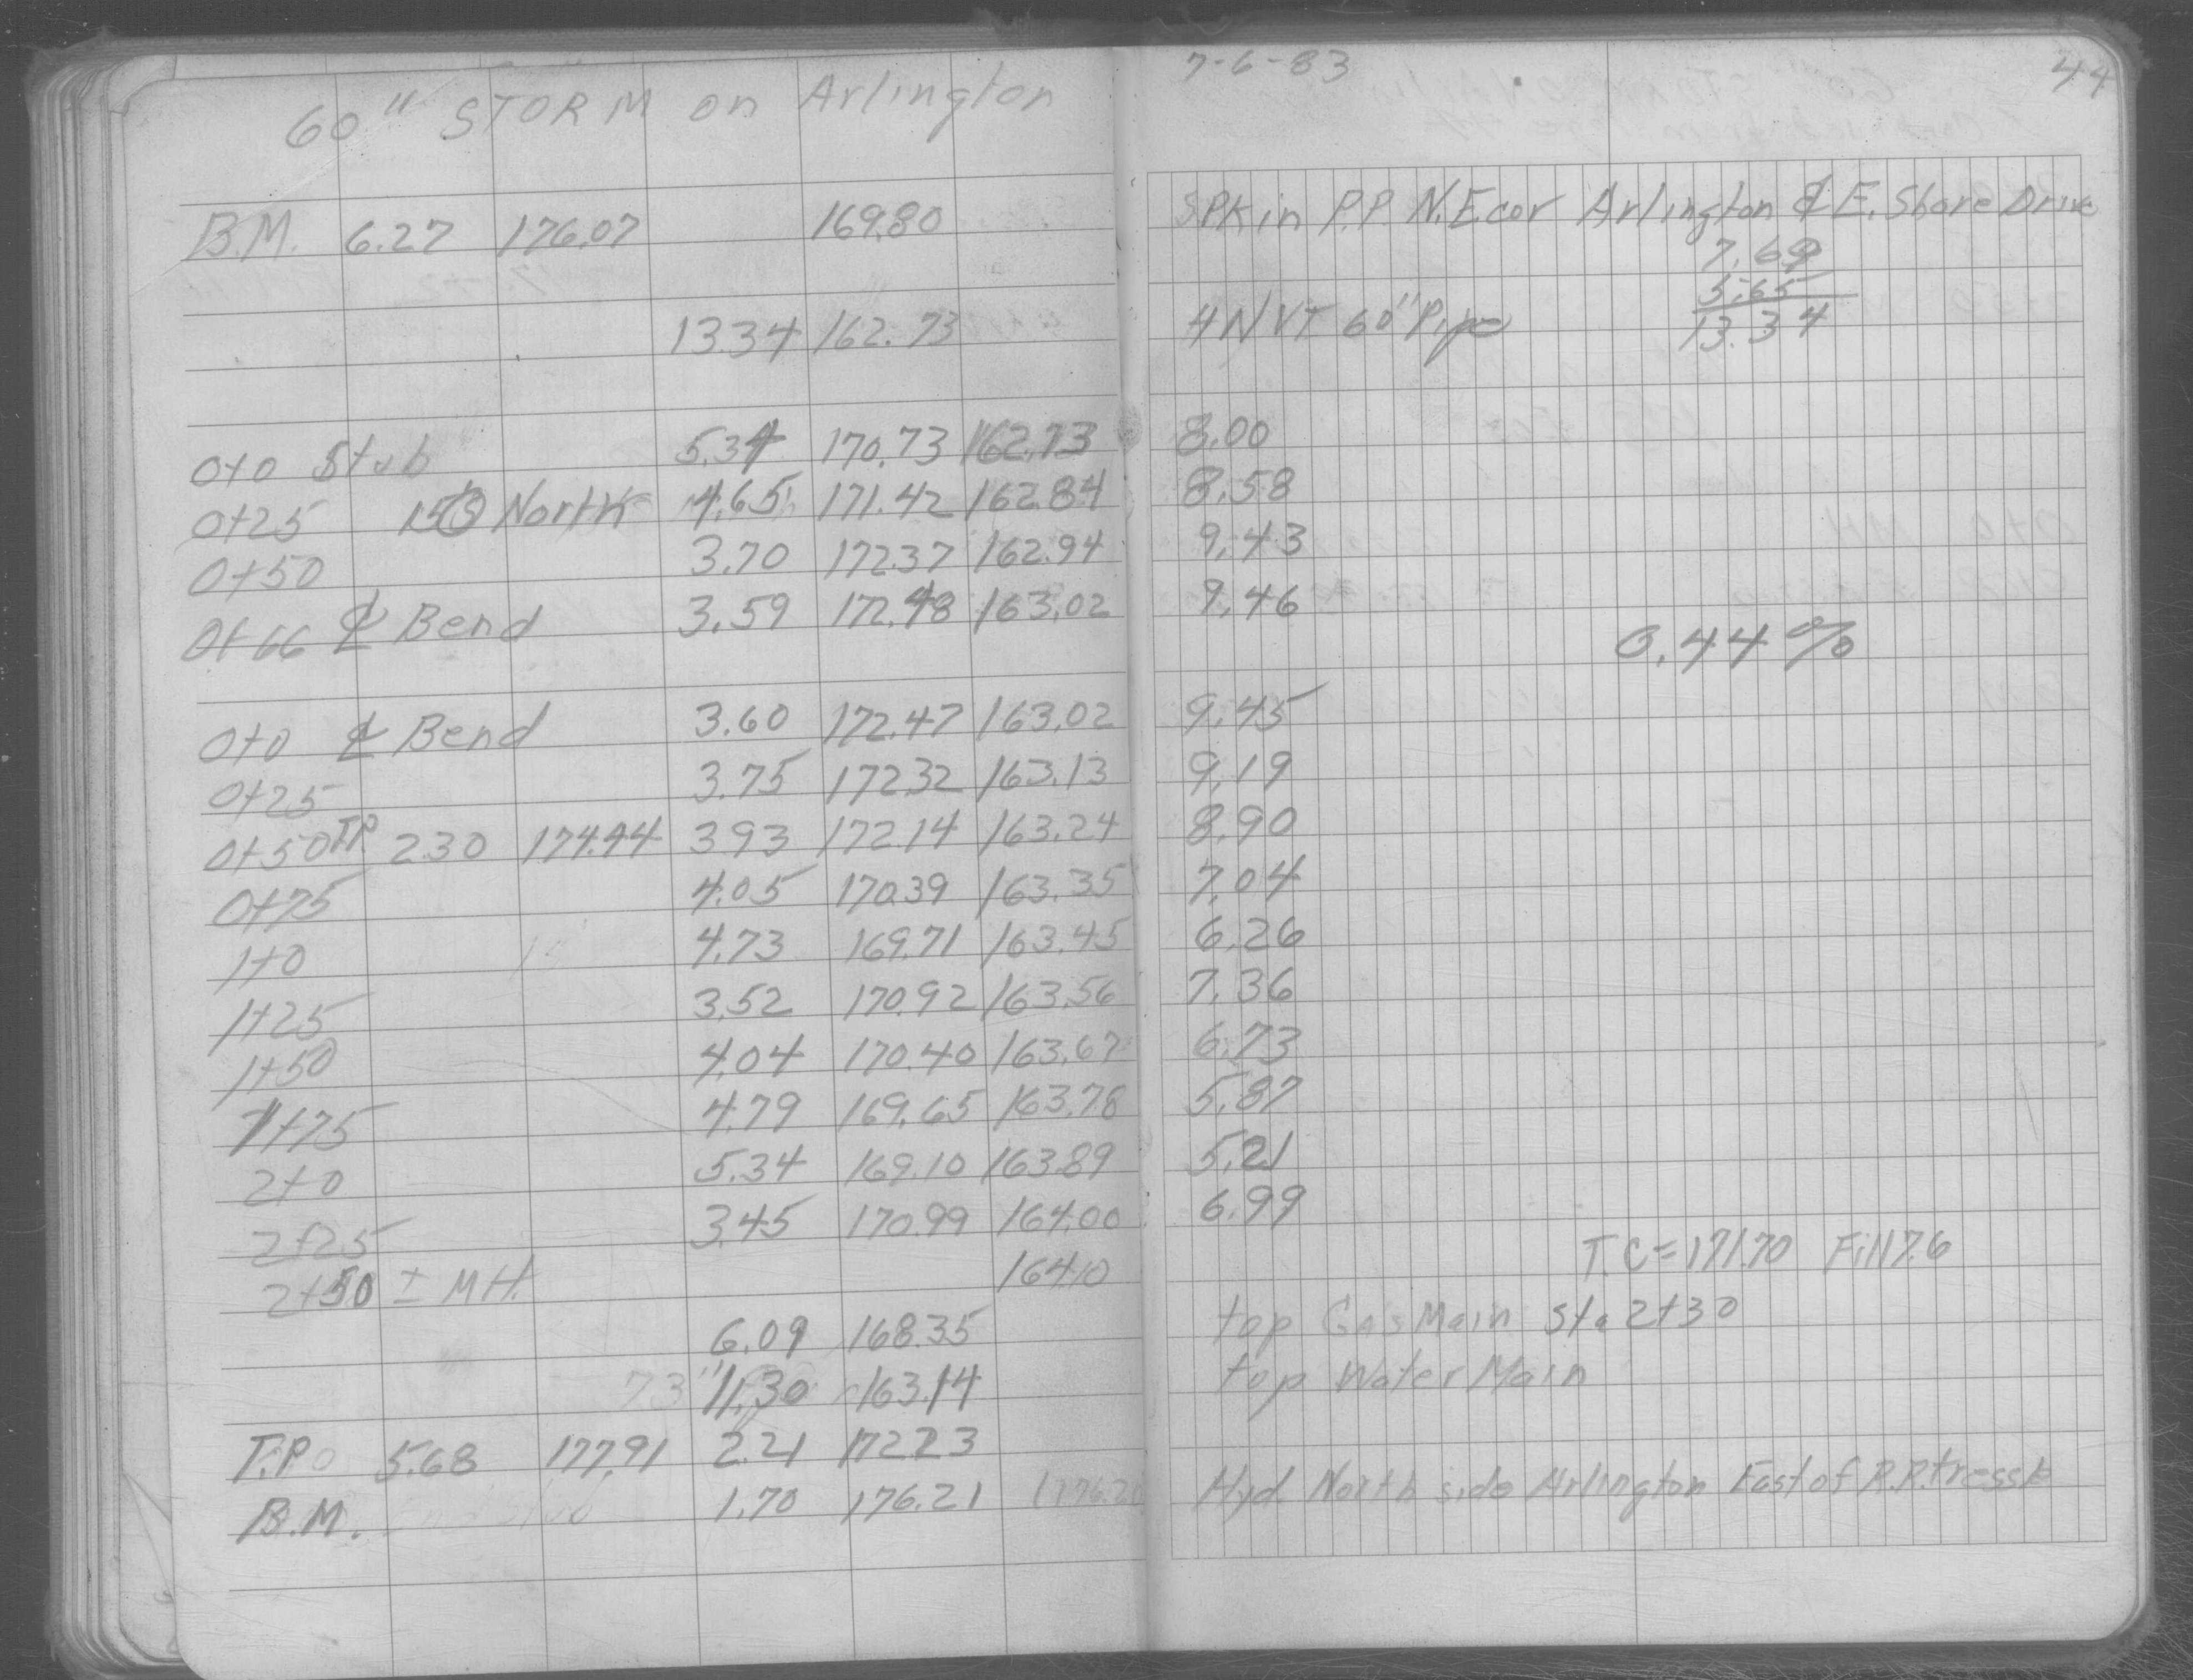 60" STORM on Arlington
7-6-83
44
B.M. 6.27 176.07 169.80 SPK in P.P. N.E cor Arlington & E. Shore Drive
7.69
5.65
13.34 162.73 INVT 60" Pipe 13.34
0+0 Stub 5.34 170.73 162.73 8.00
0+25 North 4.65 171.42 162.84 8.58
0+50 3.70 172.37 162.94 9.43
0+66 ℄ Bend 3.59 172.48 163.02 9.46
0.44%
0+0 ℄ Bend 3.60 172.47 163.02 9.45
0+25 3.75 172.32 163.13 9.19
0+50 T.P. 2.30 174.44 3.93 172.14 163.24 8.90
0+75 4.05 170.39 163.35 7.04
1+0 4.73 169.71 163.45 6.26
1+25 3.52 170.92 163.56 7.36
1+50 4.04 170.40 163.67 6.73
1+75 4.79 169.65 163.78 5.87
2+0 5.34 169.10 163.89 5.21
2+25 3.45 170.99 164.00 6.99
2+50 ± MH. 164.10 T.C = 171.70 Fill 7.6
6.09 168.35 top Gas Main Sta 2+30
73" 11.30 163.14 top Water Main
T.P. 5.68 177.91 2.21 172.23
B.M. 1.70 176.21 Hyd. North side Arlington East of R.R. tressle